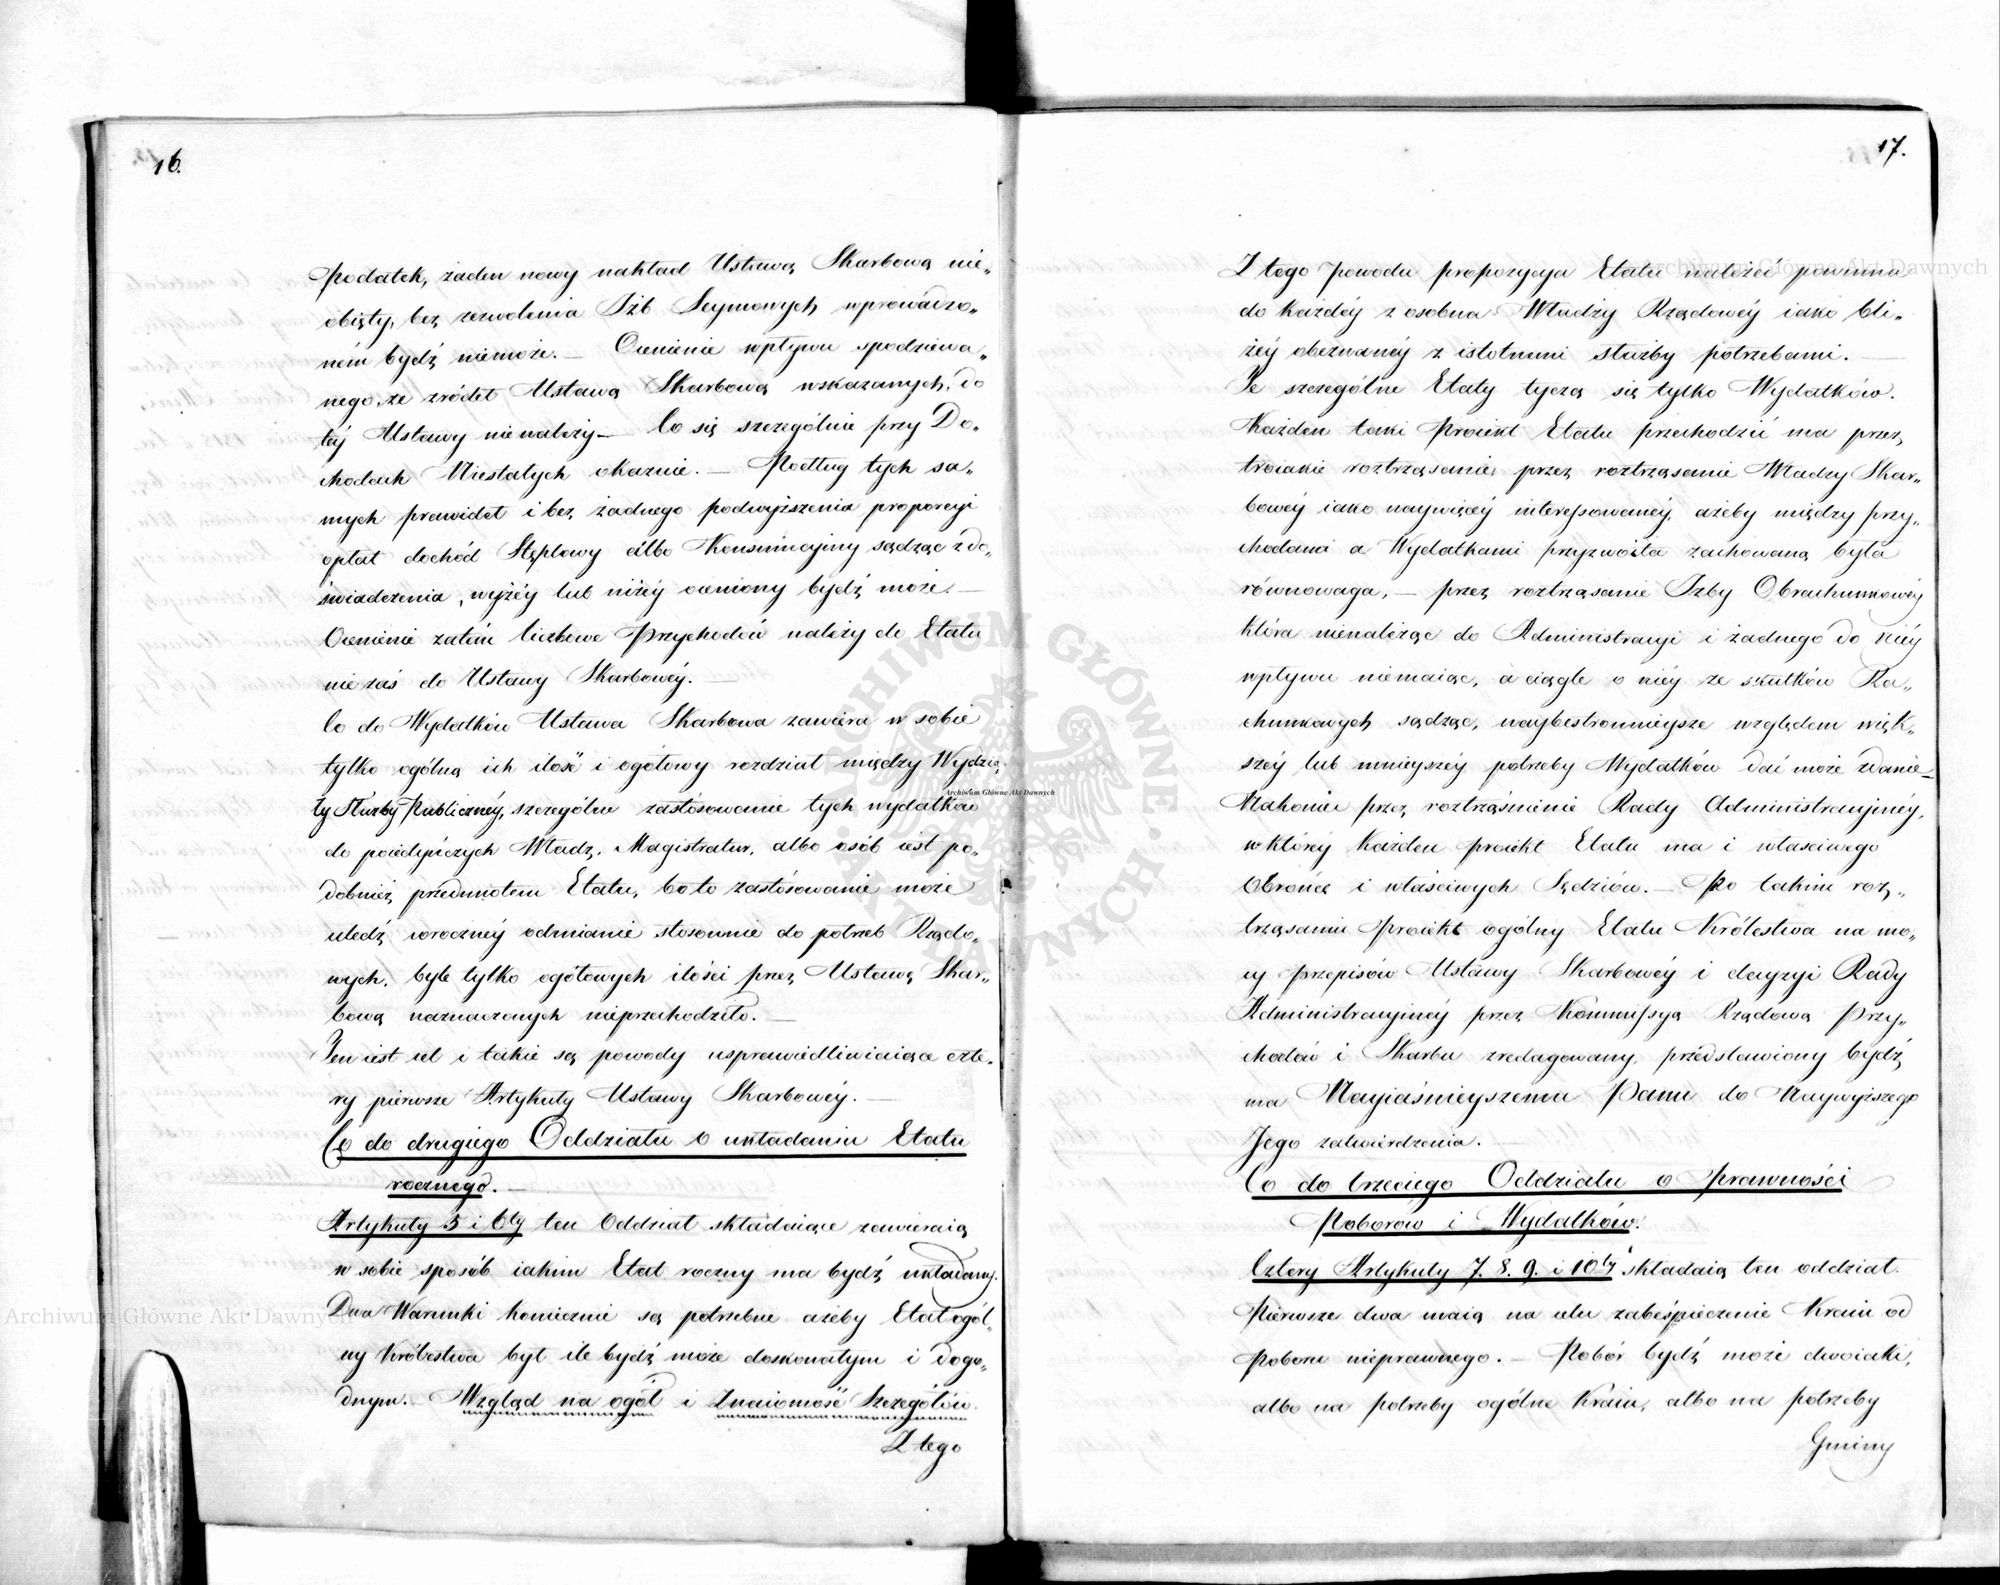 16.
podatek, żaden nowy nakład Ustawą Skarbową nie„
obięty, bez zezwolenia Izb Seymowych wprowadzo„
ném bydź niemoże. — Ocenienie wpływu spodziewa„
nego ze zródeł Ustawą Skarbową wskazanych, do
téy Ustawy nienależy — Co się szczególnie przy Do„
chodach Niestałych okazuie. — Podług tych sa„
mych prawideł i bez żadnego podwyższenia proporcyi
opłat dochód Stęplowy albo Konsumcyiny sądząc z do„
świadczenia, wyżéy lub niżéy oceniony bydź może. —
Ocenienie zatém liczbowe Przychodów należy do Etatu
nie zaś do Ustawy Skarbowéy. —
Co do Wydatków Ustawa Skarbowa zawiera w sobie
tylko ogólną ich ilość i ogółowy rozdział między Wydzia„
ły Służby Publicznéy, szczególne zastósowanie tych wydatków
do poiedyńczych Władz, Magistratur, albo osób iest po„
dobnież przedmiotem Etatu, bo to zastósowanie może
uledz corocznéy odmianie stosownie do potrzeb Rządo„
wych, byle tylko ogółowych ilości przez Ustawę Skar„
bową naznaczonych nieprzechodziło. —
Ten iest cel i takie są powody usprawiedliwiaiące czte„
ry pierwsze Artykuły Ustawy Skarbowéy. —
Co do drugiego Oddziału o układaniu Etatu
rocznego. —
Artykuły 5 i 6ty ten Oddział składaiące zawieraią
w sobie sposób iakim Etat roczny ma bydź układany.
Dwa Warunki koniecznie są potrzebne ażeby Etat ogól„
ny Królestwa był ile bydź może doskonałym i dogo„
dnym. — Wzgląd na ogół i Znaiomość Szczegółów.
Z tego
17.
Z tego powodu propozycya Etatu należeć powinna
do każdéy z osobna Władzy Rządowéy iako bli„
żéy obeznanéy z istotnemi służby potrzebami. —
Te szczególne Etaty tyczą się tylko Wydatków.
Każden taki Proiekt Etatu przechodzić ma przez
troiakie roztrząsanie, przez roztrząsanie Władzy Skar„
bowéy iako naywięcéy interessowanéy, ażeby między przy„
chodami a Wydatkami przyzwoita zachowaną była
równowaga, — przez roztrząsanie Izby Obrachunkowéy
która nienależąc do Administracyi i żadnego do niéy
wpływu niemaiąc, a ciągle o niéy ze skutków Ra„
chunkowych sądząc, naybestronnieysze względem więk„
széy lub mnieyszéy potrzeby Wydatków dać może zdanie_
Nakoniec przez roztrząśnienie Rady Administracyinéy,
w któréy Każden proiekt Etatu ma i właściwego
Obrońcę i właściwych Sędziów. — Po takim roz„
trząsaniu Proiekt ogólny Etatu Królestwa na mo„
cy przepisów Ustawy Skarbowéy i decyzyi Rady
Administracyinéy przez Kommissyą Rządową Przy„
chodów i Skarbu zredagowany, przedstawiony bydź
ma Nayiaśnieyszemu Panu do Naywyższego
Jego zatwierdzenia. —
Co do trzeciego Oddziału o Prawności
Poborów i Wydatków.
Cztery Artykuły 7. 8. 9. i 10ty składaią ten oddział.
Pierwsze dwa maią na celu zabeśpieczenie Kraiu od
Poboru nieprawnego. — Pobór bydź może dwoiaki,
albo na potrzeby ogólne Kraiu, albo na potrzeby
Gminy
Archiwum Główne Akt Dawnych
Archiwum Główne Akt Dawnych
Archiwum Główne Akt Dawnych
ARCHIWUM GŁÓWNE AKT DAWNYCH